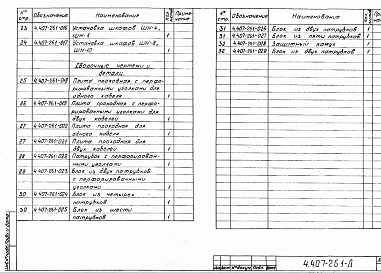 № стр.
Обозначение
Наименование
Приме-чание
23
4.407-261-016
Установка шкафов ШН-4,
ШН-8
1
24
4.407-261-017
Установка шкафов ШН-8,
ШН-10
1
Сборочные чертежи и
детали
25
4.407-261-018
Плита проходная с перфо-
рированными уголками для
одного кабеля
1
26
4.407-261-019
Плита проходная с перфо-
рированными уголками для
двух кабелей
1
27
4.407-261-020
Плита проходная для
одного кабеля
1
27
4.407-261-021
Плита проходная для
двух кабелей
1
28
4.407-261-022
Патрубок с перфорирован-
ными уголками
1
29
4.407-261-023
Блок из двух патрубков
с перфорированными
уголками
1
30
4.407-261-024
Блок из четырех
патрубков
1
30
4.407-261-025
Блок из шести
патрубков
1
№ стр.
Обозначение
Наименование
31
4.407-261-026
Блок из двух патрубков
1
31
4.407-261-027
Блок из пяти патрубков
1
32
4.407-261-028
Защитный кожух
1
32
4.407-261-029
Блок из двух патрубков
1
4.407-261-Д